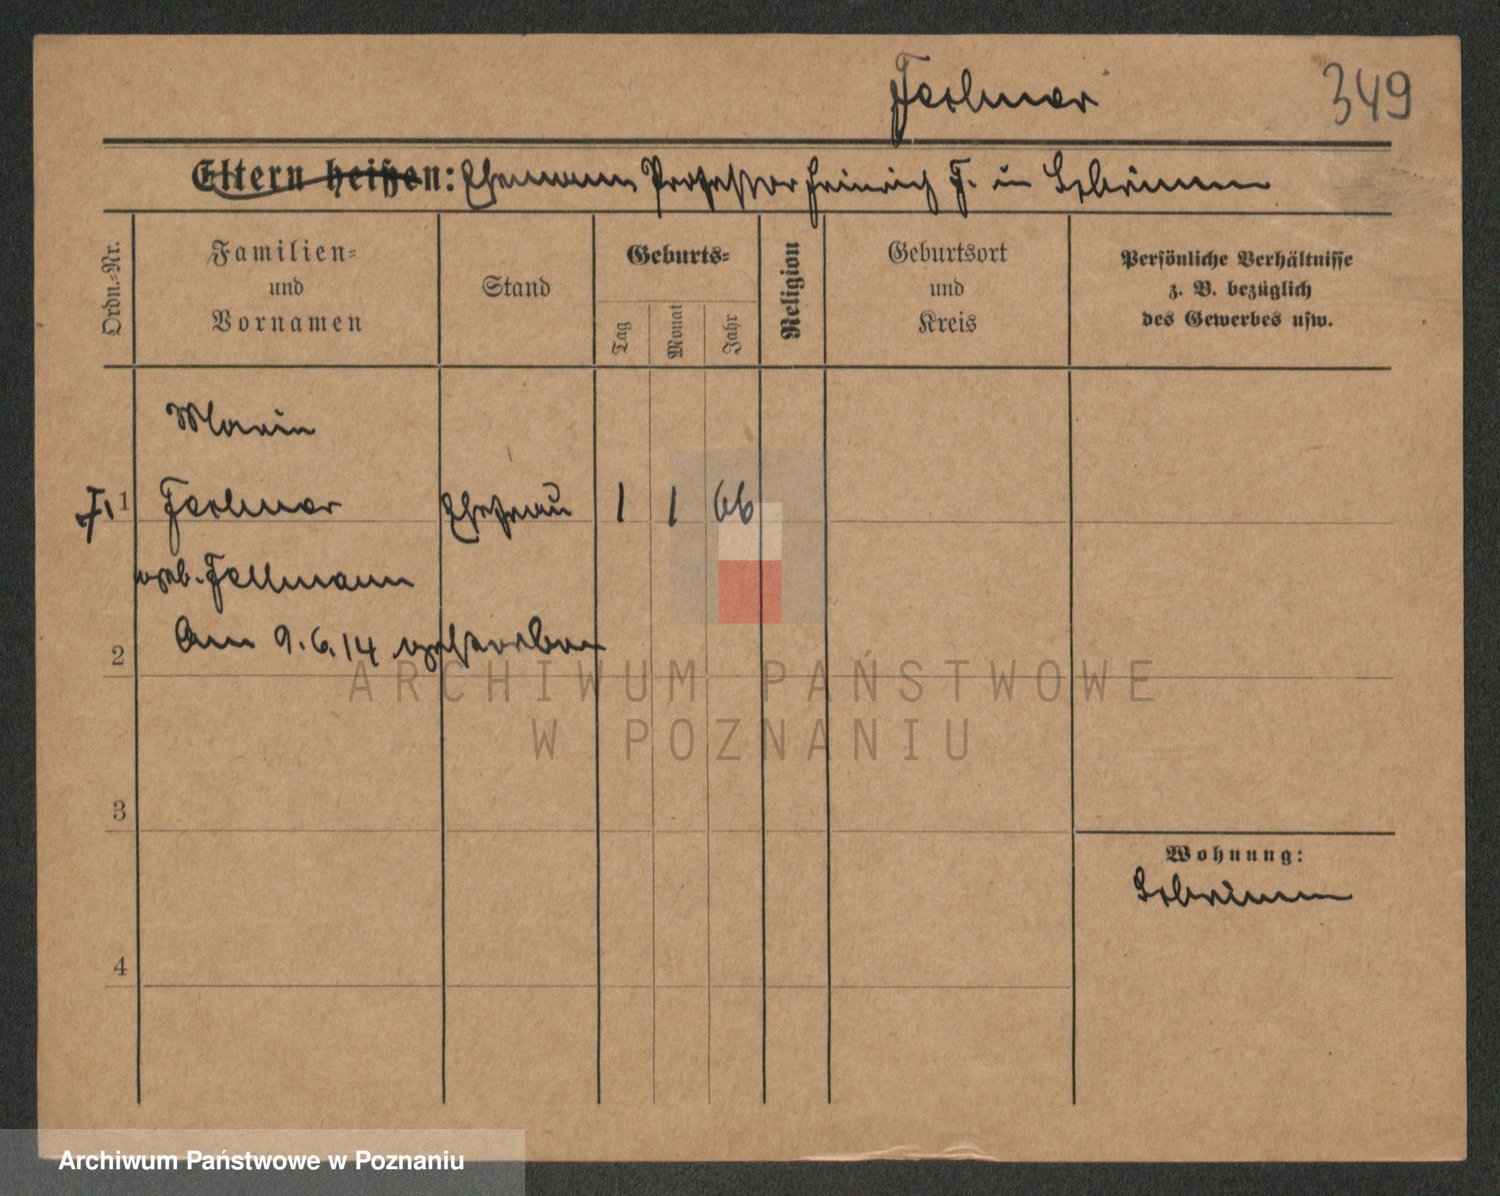 349
Eltern heißen: Ehemann Professor Heinrich F. in Schrimm
Ordn.-Nr.
Familien-
und
Vornamen
Stand
Geburts-
Tag
Monat
Jahr
Religion
Geburtsort
und
Kreis
Persönliche Verhältnisse
z. B. bezüglich
des Gewerbes usw.
Marie
1
Ehefrau
1
1
66
geb. Fellmann
2
Am 9.6.14 gestorben
ARCHIWUM PAŃSTWOWE
W POZNANIU
3
Wohnung:
Schrimm
4
Archiwum Państwowe w Poznaniu